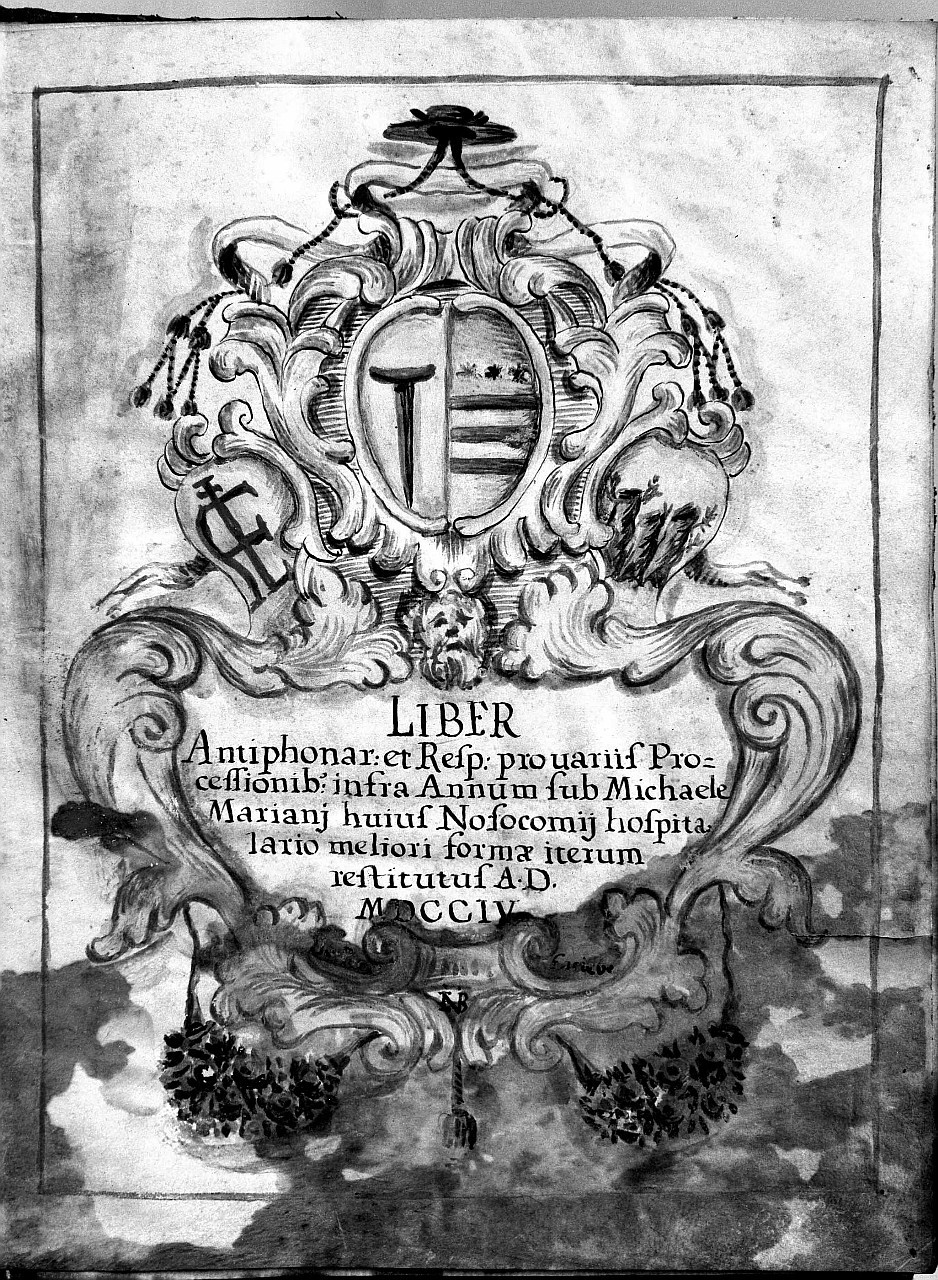 LIBER
Antiphonar: et Reſp: pro uariiſ Pro=
ceſſionib9: infra Annum ſub Michaele
Marianj huiuſ Noſocomij hoſpita,
lario meliori formæ iterum
reſtitutuſ A·D.
MDCCIV